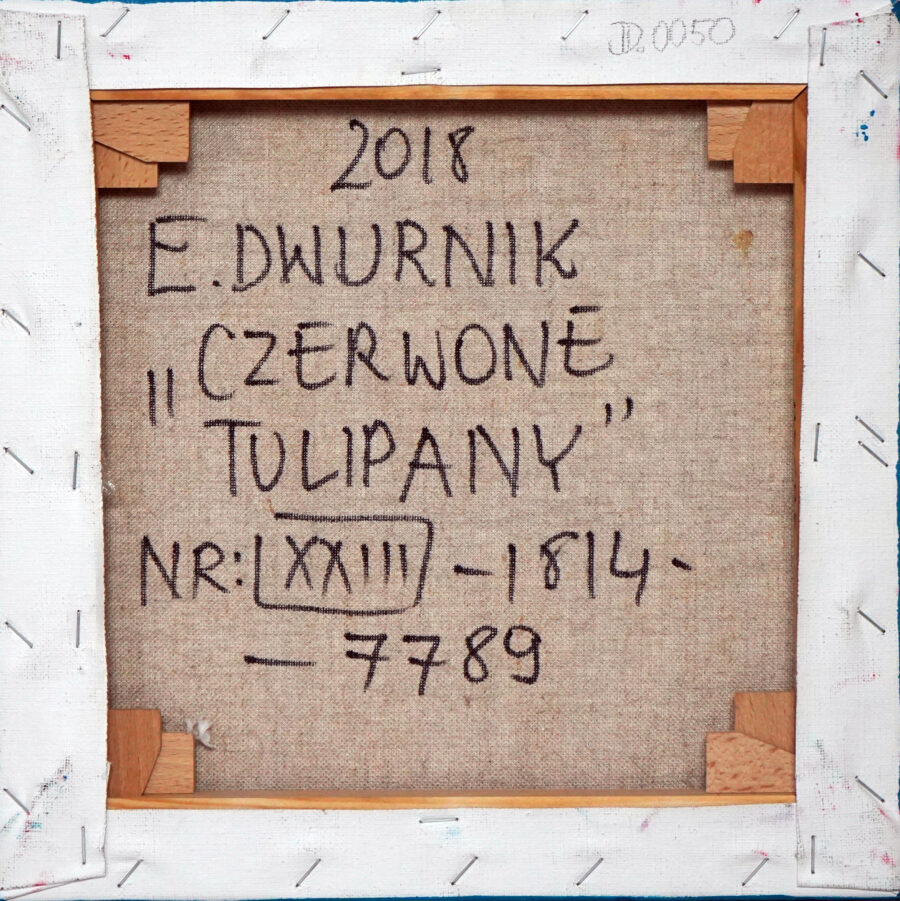 D.0050
2018
E.DWURNIK
„CZERWONE
TULIPANY”
NR: XXIII -1814-
- 7789